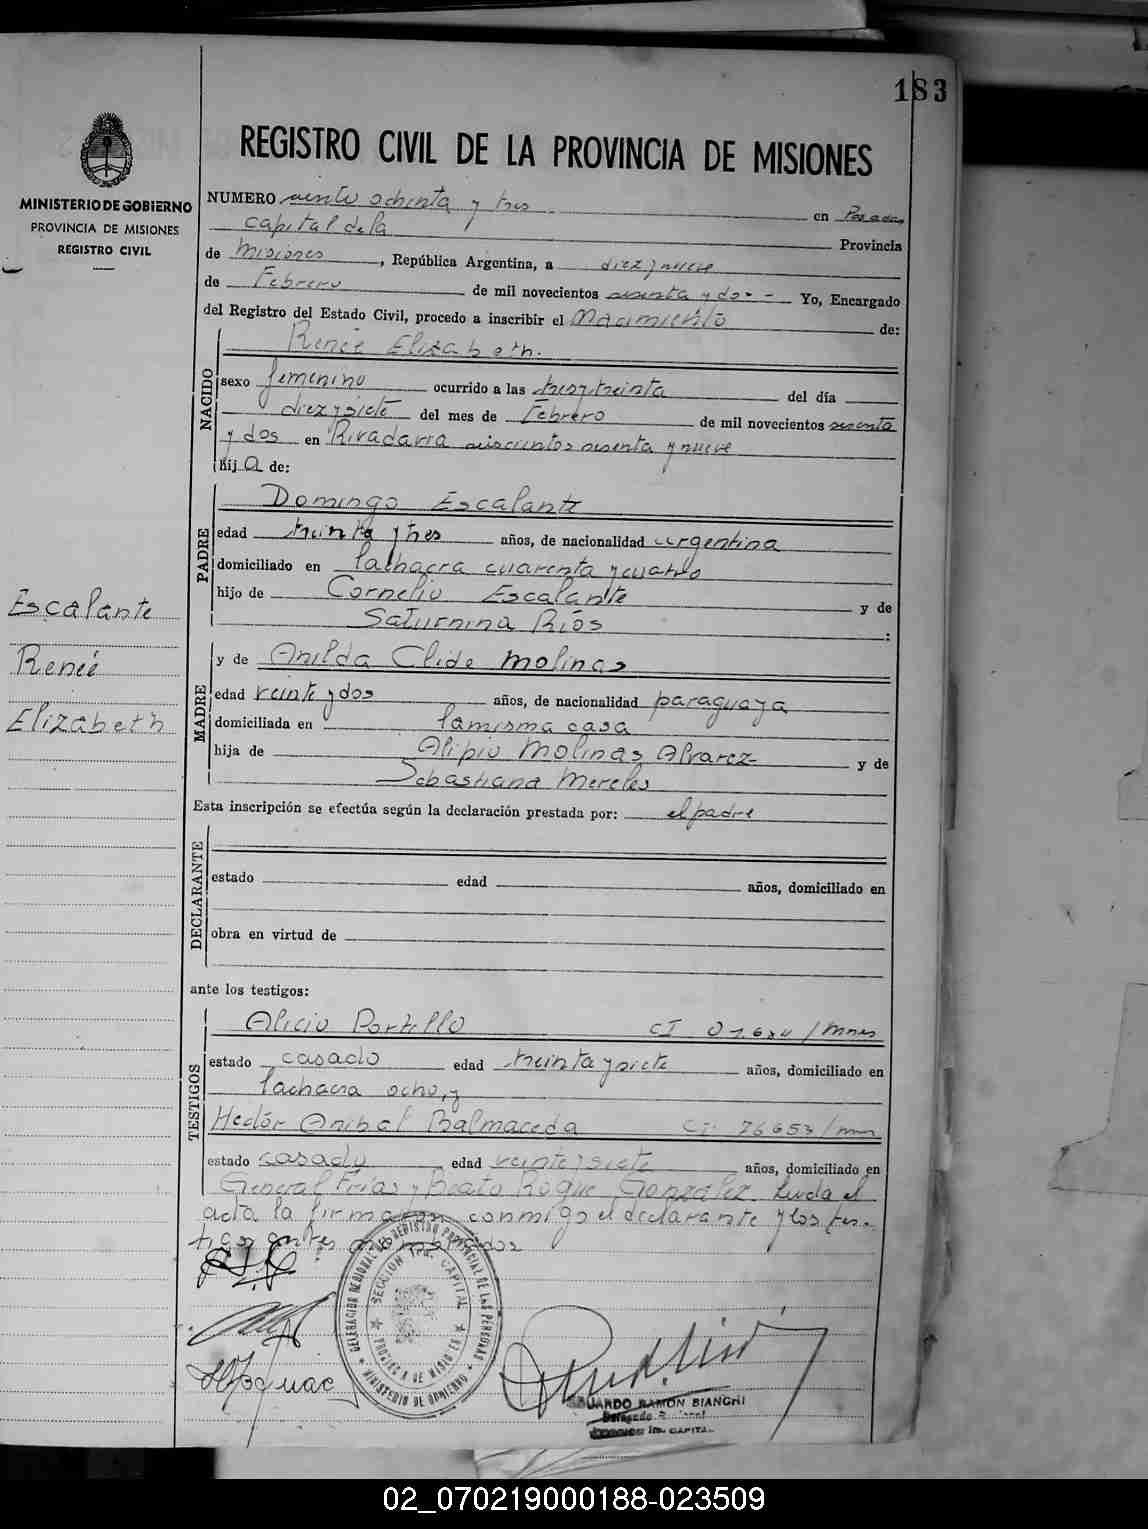 183
REGISTRO CIVIL DE LA PROVINCIA DE MISIONES
MINISTERIO DE GOBIERNO
PROVINCIA DE MISIONES
REGISTRO CIVIL
NUMERO ciento ochenta y tres en Posadas
capital de la Provincia
de Misiones, República Argentina, a diez y nueve
de Febrero de mil novecientos sesenta y dos - Yo, Encargado
del Registro del Estado Civil, procedo a inscribir el Nacimiento de:
NACIDO
Reneé Elizabeth.
sexo femenino ocurrido a las tres y treinta del día
diez y siete del mes de Febrero de mil novecientos sesenta
y dos en Rivadavia seiscientos sesenta y nueve
hija de:
PADRE
Domingo Escalante
edad treinta y tres años, de nacionalidad argentina
domiciliado en la chacra cuarenta y cuatro
hijo de Cornelio Escalante y de
Saturnina Ríos :
Escalante
Reneé
Elizabeth
MADRE
y de Anilda Clide Molinas
edad veinte y dos años, de nacionalidad paraguaya
domiciliada en la misma casa
hija de Alipio Molinas Alvarez y de
Sebastiana Mereles
Esta inscripción se efectúa según la declaración prestada por: el padre
DECLARANTE
estado edad años, domiciliado en
obra en virtud de
ante los testigos:
TESTIGOS
Alicio Portillo CI /mnes
estado casado edad treinta y siete años, domiciliado en
la chacra ocho, y
Hector Anibal Balmaceda CI 76653/mnes
estado casado edad veinte y siete años, domiciliado en
General Frias y Beato Roque González. Leida el
acta la firmaron conmigo el declarante y los tes-
tigos antes
DELEGACION REGIONAL DEL REGISTRO PROVINCIAL DE LAS PERSONAS
SECCION 1ra. CAPITAL
PROVINCIA DE MISIONES
MINISTERIO DE GOBIERNO
EDUARDO RAMON BIANCHI
Delegado Regional
1ra. CAPITAL
02_070219000188-023509